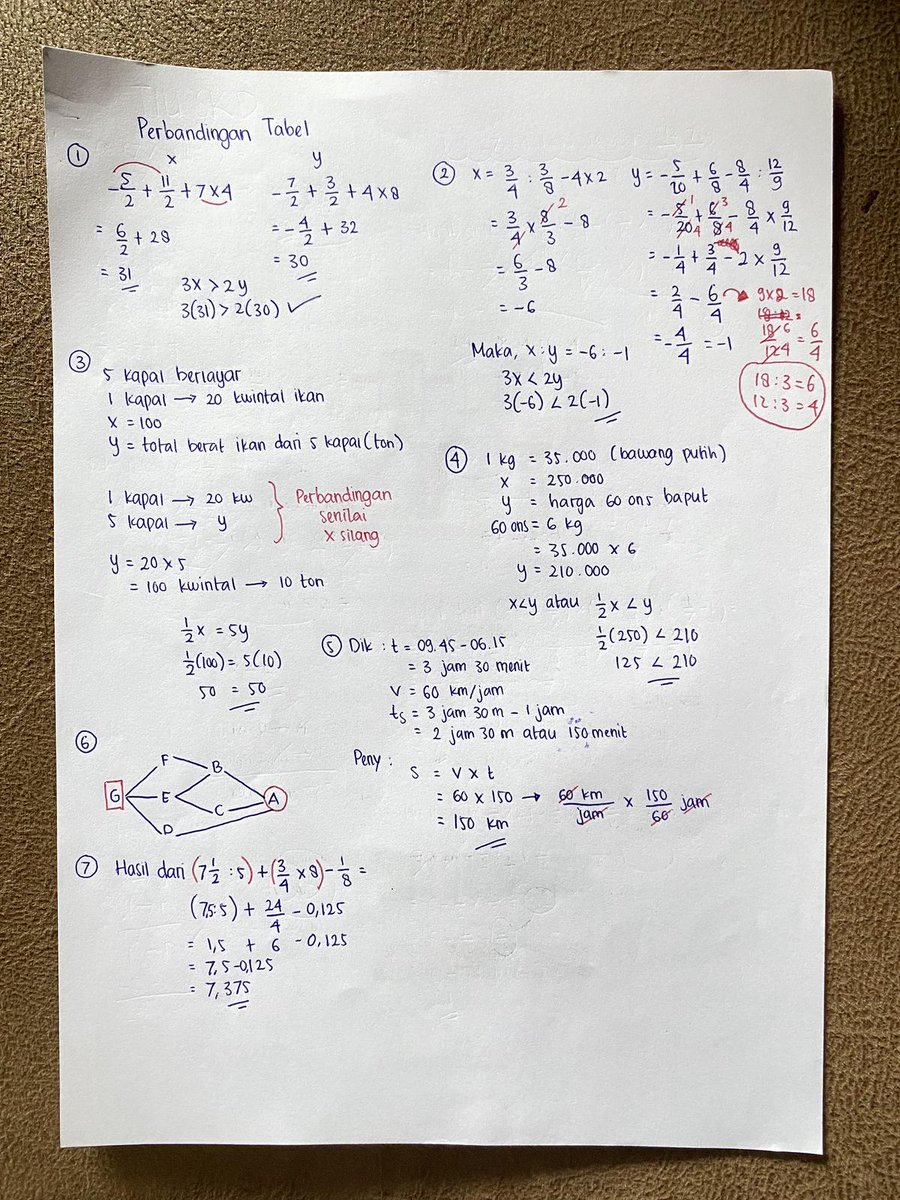 Perbandingan Tabel
① x y
-5/2 + 11/2 + 7 x 4
= 6/2 + 28
= 31
-7/2 + 3/2 + 4 x 8
= -4/2 + 32
= 30
3x > 2y
3(31) > 2(30) ✓
② x = 3/4 : 3/8 - 4 x 2
= 3/4 x 8/3 - 8
2
= 6/3 - 8
= -6
y = -5/20 + 6/8 - 8/4 : 12/9
= -5/20 + 6/8 - 8/4 x 9/12
1 4 3 4
= -1/4 + 3/4 - 2 x 9/12
= 2/4 - 6/4
= -4/4 = -1
9x2 = 18
18/12 = 6/4
6 4
18 : 3 = 6
12 : 3 = 4
Maka, x : y = -6 : -1
3x < 2y
3(-6) < 2(-1)
③ 5 kapal berlayar
1 kapal → 20 kwintal ikan
x = 100
y = total berat ikan dari 5 kapal (ton)
1 kapal → 20 kw
5 kapal → y
Perbandingan
senilai
x silang
y = 20 x 5
= 100 kwintal → 10 ton
1/2 x = 5y
1/2 (100) = 5(10)
50 = 50
④ 1 kg = 35.000 (bawang putih)
x = 250.000
y = harga 60 ons baput
60 ons = 6 kg
= 35.000 x 6
y = 210.000
x<y atau 1/2 x < y
1/2 (250) < 210
125 < 210
⑤ Dik : t = 09.45 - 06.15
= 3 jam 30 menit
v = 60 km/jam
ts = 3 jam 30 m - 1 jam
= 2 jam 30 m atau 150 menit
Peny :
s = v x t
= 60 x 150 → 60 km/jam x 150/60 jam
= 150 km
⑥
F B
G E C A
D
⑦ Hasil dari (7 1/2 : 5) + (3/4 x 8) - 1/8 =
(7,5:5) + 24/4 - 0,125
= 1,5 + 6 - 0,125
= 7,5 - 0,125
= 7,375